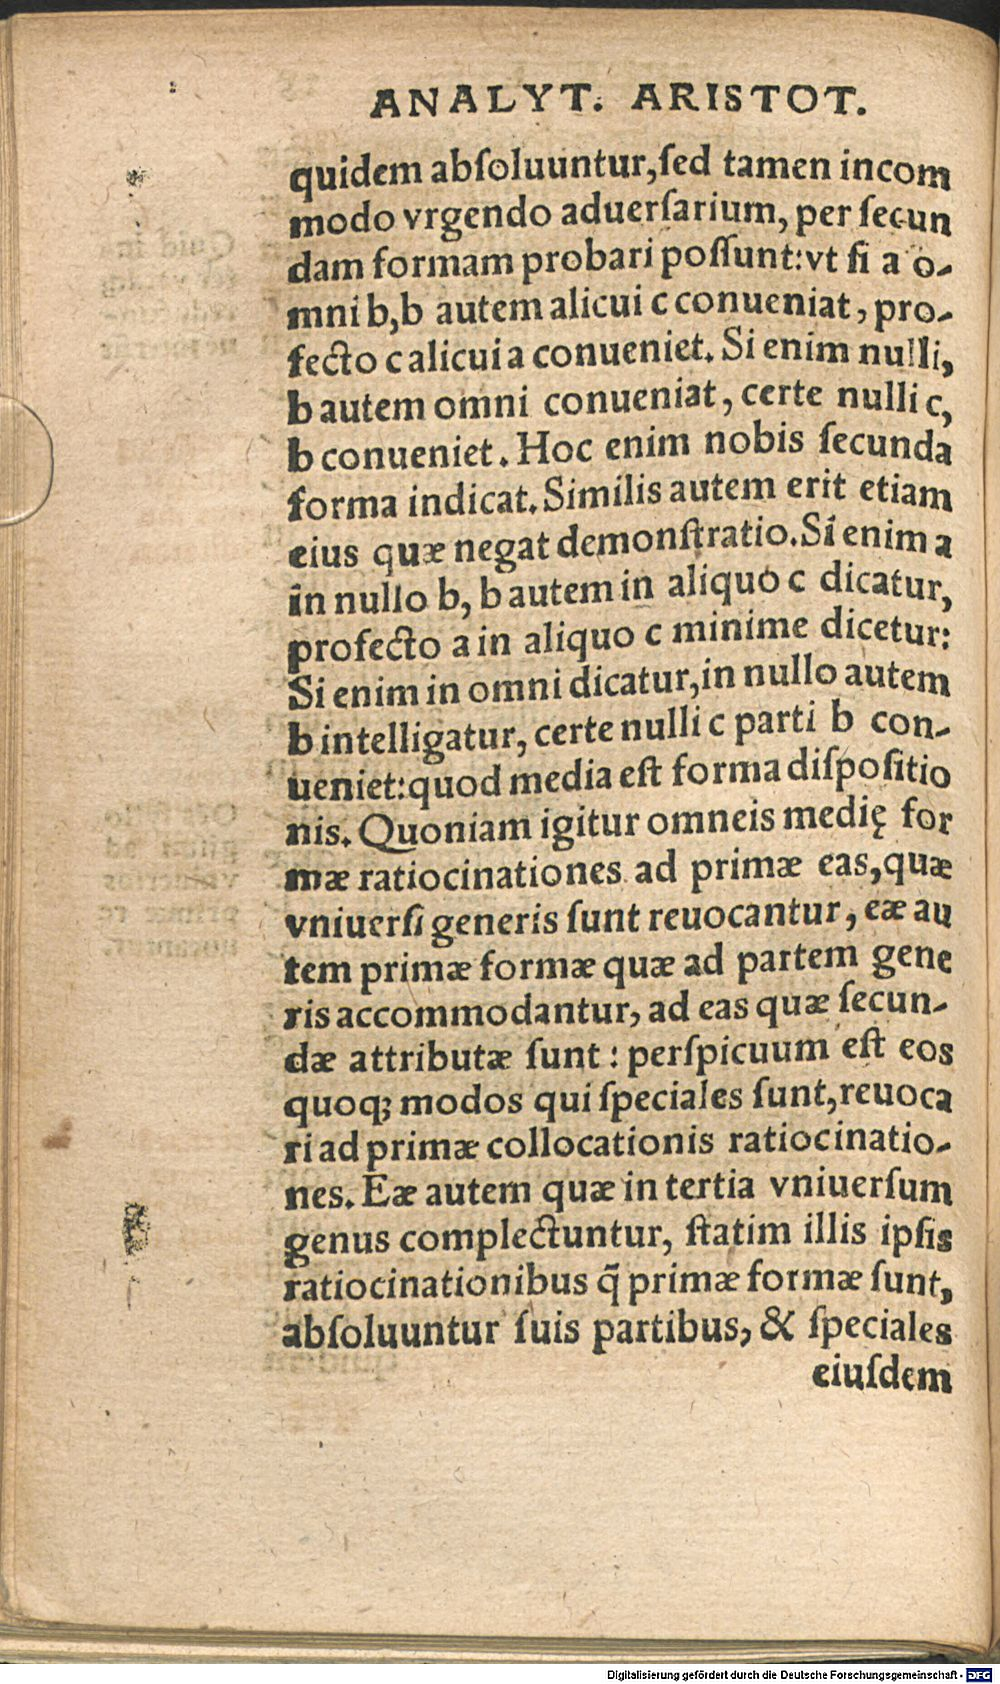 ANALYT. ARISTOT.
quidem abſoluuntur,ſed tamen incom
modo vrgendo aduerſarium, per ſecun
dam formam probari poſſunt:vt ſi a o-
mni b,b autem alicui c conueniat, pro-
fecto c alicui a conueniet. Si enim nulli,
b autem omni conueniat, certe nulli c,
b conueniet. Hoc enim nobis ſecunda
forma indicat. Similis autem erit etiam
eius quæ negat demonſtratio. Si enim a
in nullo b, b autem in aliquo c dicatur,
profecto a in aliquo c minime dicetur:
Si enim in omni dicatur,in nullo autem
b intelligatur, certe nulli c parti b con-
ueniet:quod media eſt forma diſpoſitio
nis. Quoniam igitur omneis medię for
mæ ratiocinationes ad primæ eas,quæ
vniuerſi generis ſunt reuocantur, eæ au
tem primæ formæ quæ ad partem gene
ris accommodantur, ad eas quæ ſecun-
dæ attributæ ſunt : perſpicuum eſt eos
quoq; modos qui ſpeciales ſunt,reuoca
ri ad primæ collocationis ratiocinatio-
nes. Eæ autem quæ in tertia vniuerſum
genus complectuntur, ſtatim illis ipſis
ratiocinationibus q̃ primæ formæ ſunt,
abſoluuntur ſuis partibus, & ſpeciales
eiuſdem
Digitalisierung gefördert durch die Deutsche Forschungsgemeinschaft - DFG